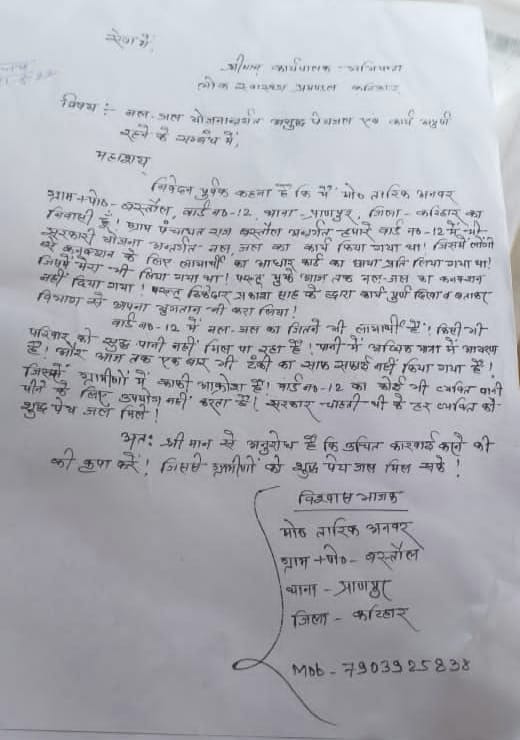 सेवा में,
श्रीमान कार्यपालक - अभियन्ता
लोक स्वास्थ्य प्रमण्डल कटिहार
विषय :- नल-जल योजनान्तर्गत अशुद्ध पेयजल एवं कार्य अपूर्ण
रहने के सम्बंध में,
महाशय,
निवेदन पूर्वक कहना है कि मैं मो० तारिक अनवर
ग्राम+पो०- बस्तौल, वार्ड न०-12, थाना-प्राणपुर, जिला-कटिहार का
निवासी हूँ! ग्राम पंचायत राज बस्तौल अन्तर्गत हमारे वार्ड न०-12 में भी
सरकारी योजना अन्तर्गत नल, जल का कार्य किया गया था! जिसमें लोगों
से कनक्शन के लिए लाभार्थी का आधार कार्ड का छाया प्रति लिया गया था!
जिसमें मेरा भी लिया गया था! परन्तु मुझे आज तक नल-जल का कनक्शन
नहीं दिया गया! परन्तु ठिकेदार अकाश साह के द्वारा कार्य पूर्ण दिखा व बताकर
विभाग से अपना भुगतान भी करा लिया!
वार्ड न०-12 में नल-जल का जितने भी लाभार्थी हैं! किसी भी
परिवार को शुद्ध पानी नहीं मिल पा रहा है! पानी में अधिक मात्रा में आयरण
है! और आज तक एक बार भी टंकी का साफ सफाई नहीं किया गया है!
जिससे ग्रामीणों में काफी आक्रोश है! वार्ड न०-12 का कोई भी व्यक्ति पानी
पीने के लिए उपयोग नहीं करता है! सरकार चाहती थी के हर व्यक्ति को
शुद्ध पेय जल मिले!
अत: श्री मान से अनुरोध है कि उचित कारवाई करने की
की कृपा करें! जिससे ग्रामीणों को शुद्ध पेय जल मिल सके!
विश्वास भाजक
मो० तारिक अनवर
ग्राम+पो०- बस्तौल
थाना - प्राणपुर
जिला - कटिहार
Mob - 7903925838